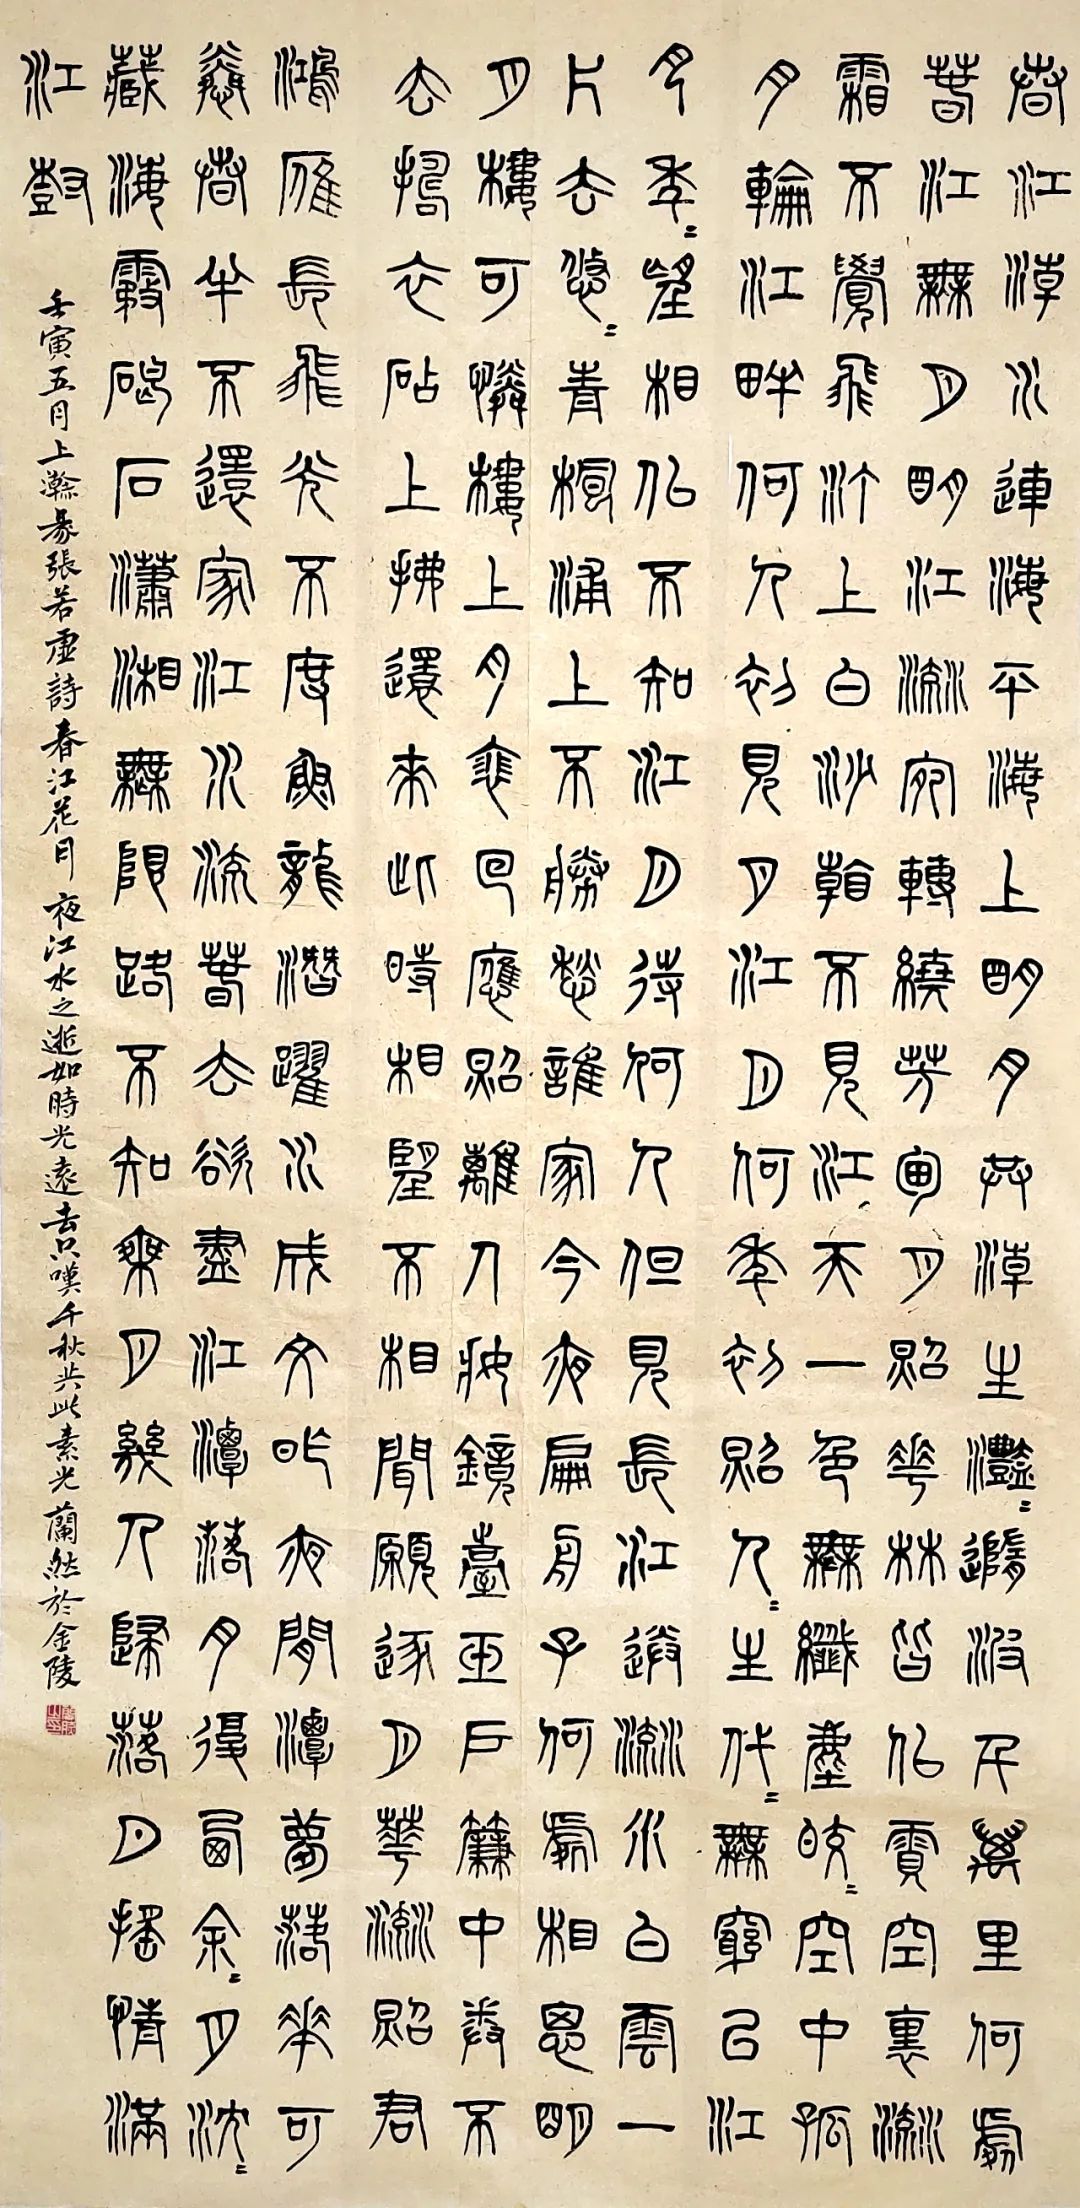 春江潮水連海平海上明月共潮生灩〻隨波千萬里何處
春江無月明江流宛轉繞芳甸月照花林皆似霰空裏流
霜不覺飛汀上白沙看不見江天一色無纖塵皎〻空中孤
月輪江畔何人初見月江月何年初照人〻生代〻無窮已江
月年〻望相似不知江月待何人但見長江送流水白雲一
片去悠〻青楓浦上不勝愁誰家今夜扁舟子何處相思明
月樓可憐樓上月裴回應照離人妝鏡臺玉戶簾中卷不
去搗衣砧上拂還來此時相望不相聞願逐月華流照君
鴻雁長飛光不度魚龍潛躍水成文昨夜閒潭夢落花可
憐春半不還家江水流春去欲盡江潭落月復西斜〻月沈〻
藏海霧碣石瀟湘無限路不知乘月幾人歸落月搖情滿
江樹
壬寅五月上澣录張若虛詩春江花月夜江水之逝如時光遠去只嘆千秋共此素光蘭然於金陵